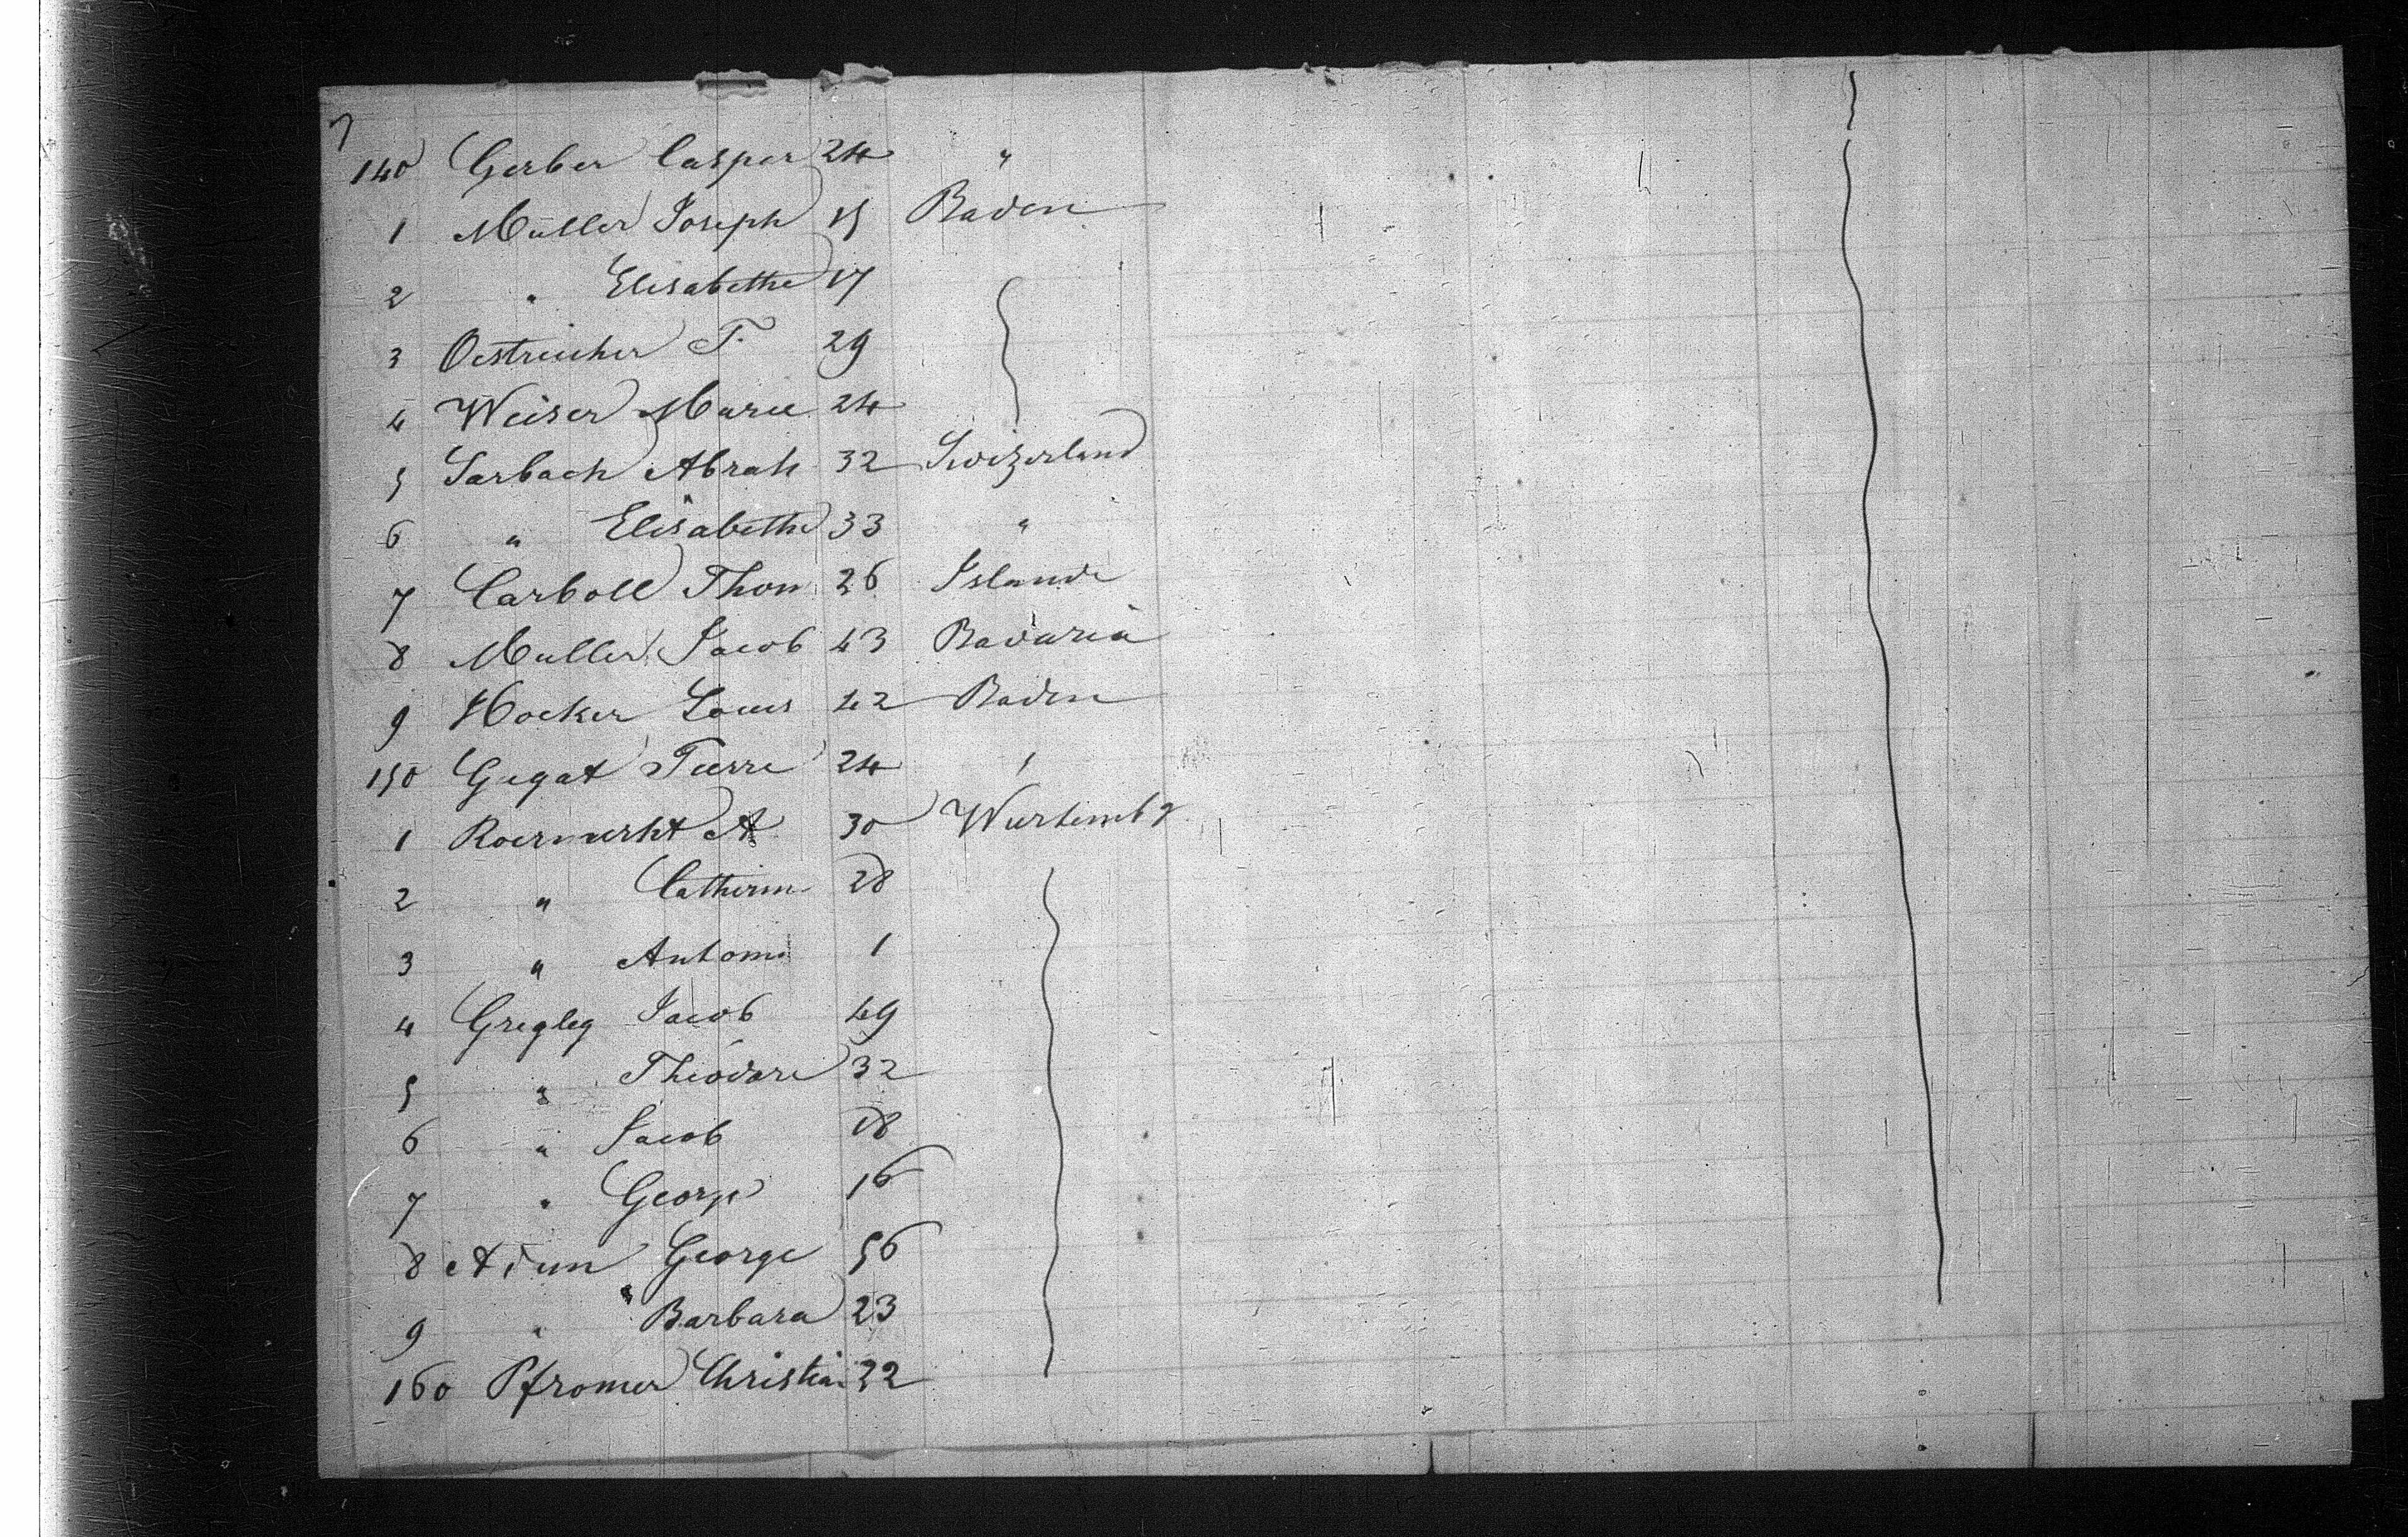 7
140 Gerber Casper 24 "
1 Muller Joseph 15 Baden
2 " Elisabethe 17
3 Oestreicher F. 29
4 Weiser Marie 24
5 Sarbach Abrah 32 Swizerland
6 " Elisabethe 33 "
7 Carboll Thom 26 Islande
8 Muller Jacob 43 Bavaria
9 Hocker Louis 42 Baden
150 Gegat Pierre 24 "
1 A 30 Wurtembg
2 " Catherin 28
3 " Antoni 1
4 Gregleg Jacob 49
5 " Theodore 32
6 " Jacob 18
7 " George 16
8 George 56
9 " Barbara 23
160 Pfromer Christian 22